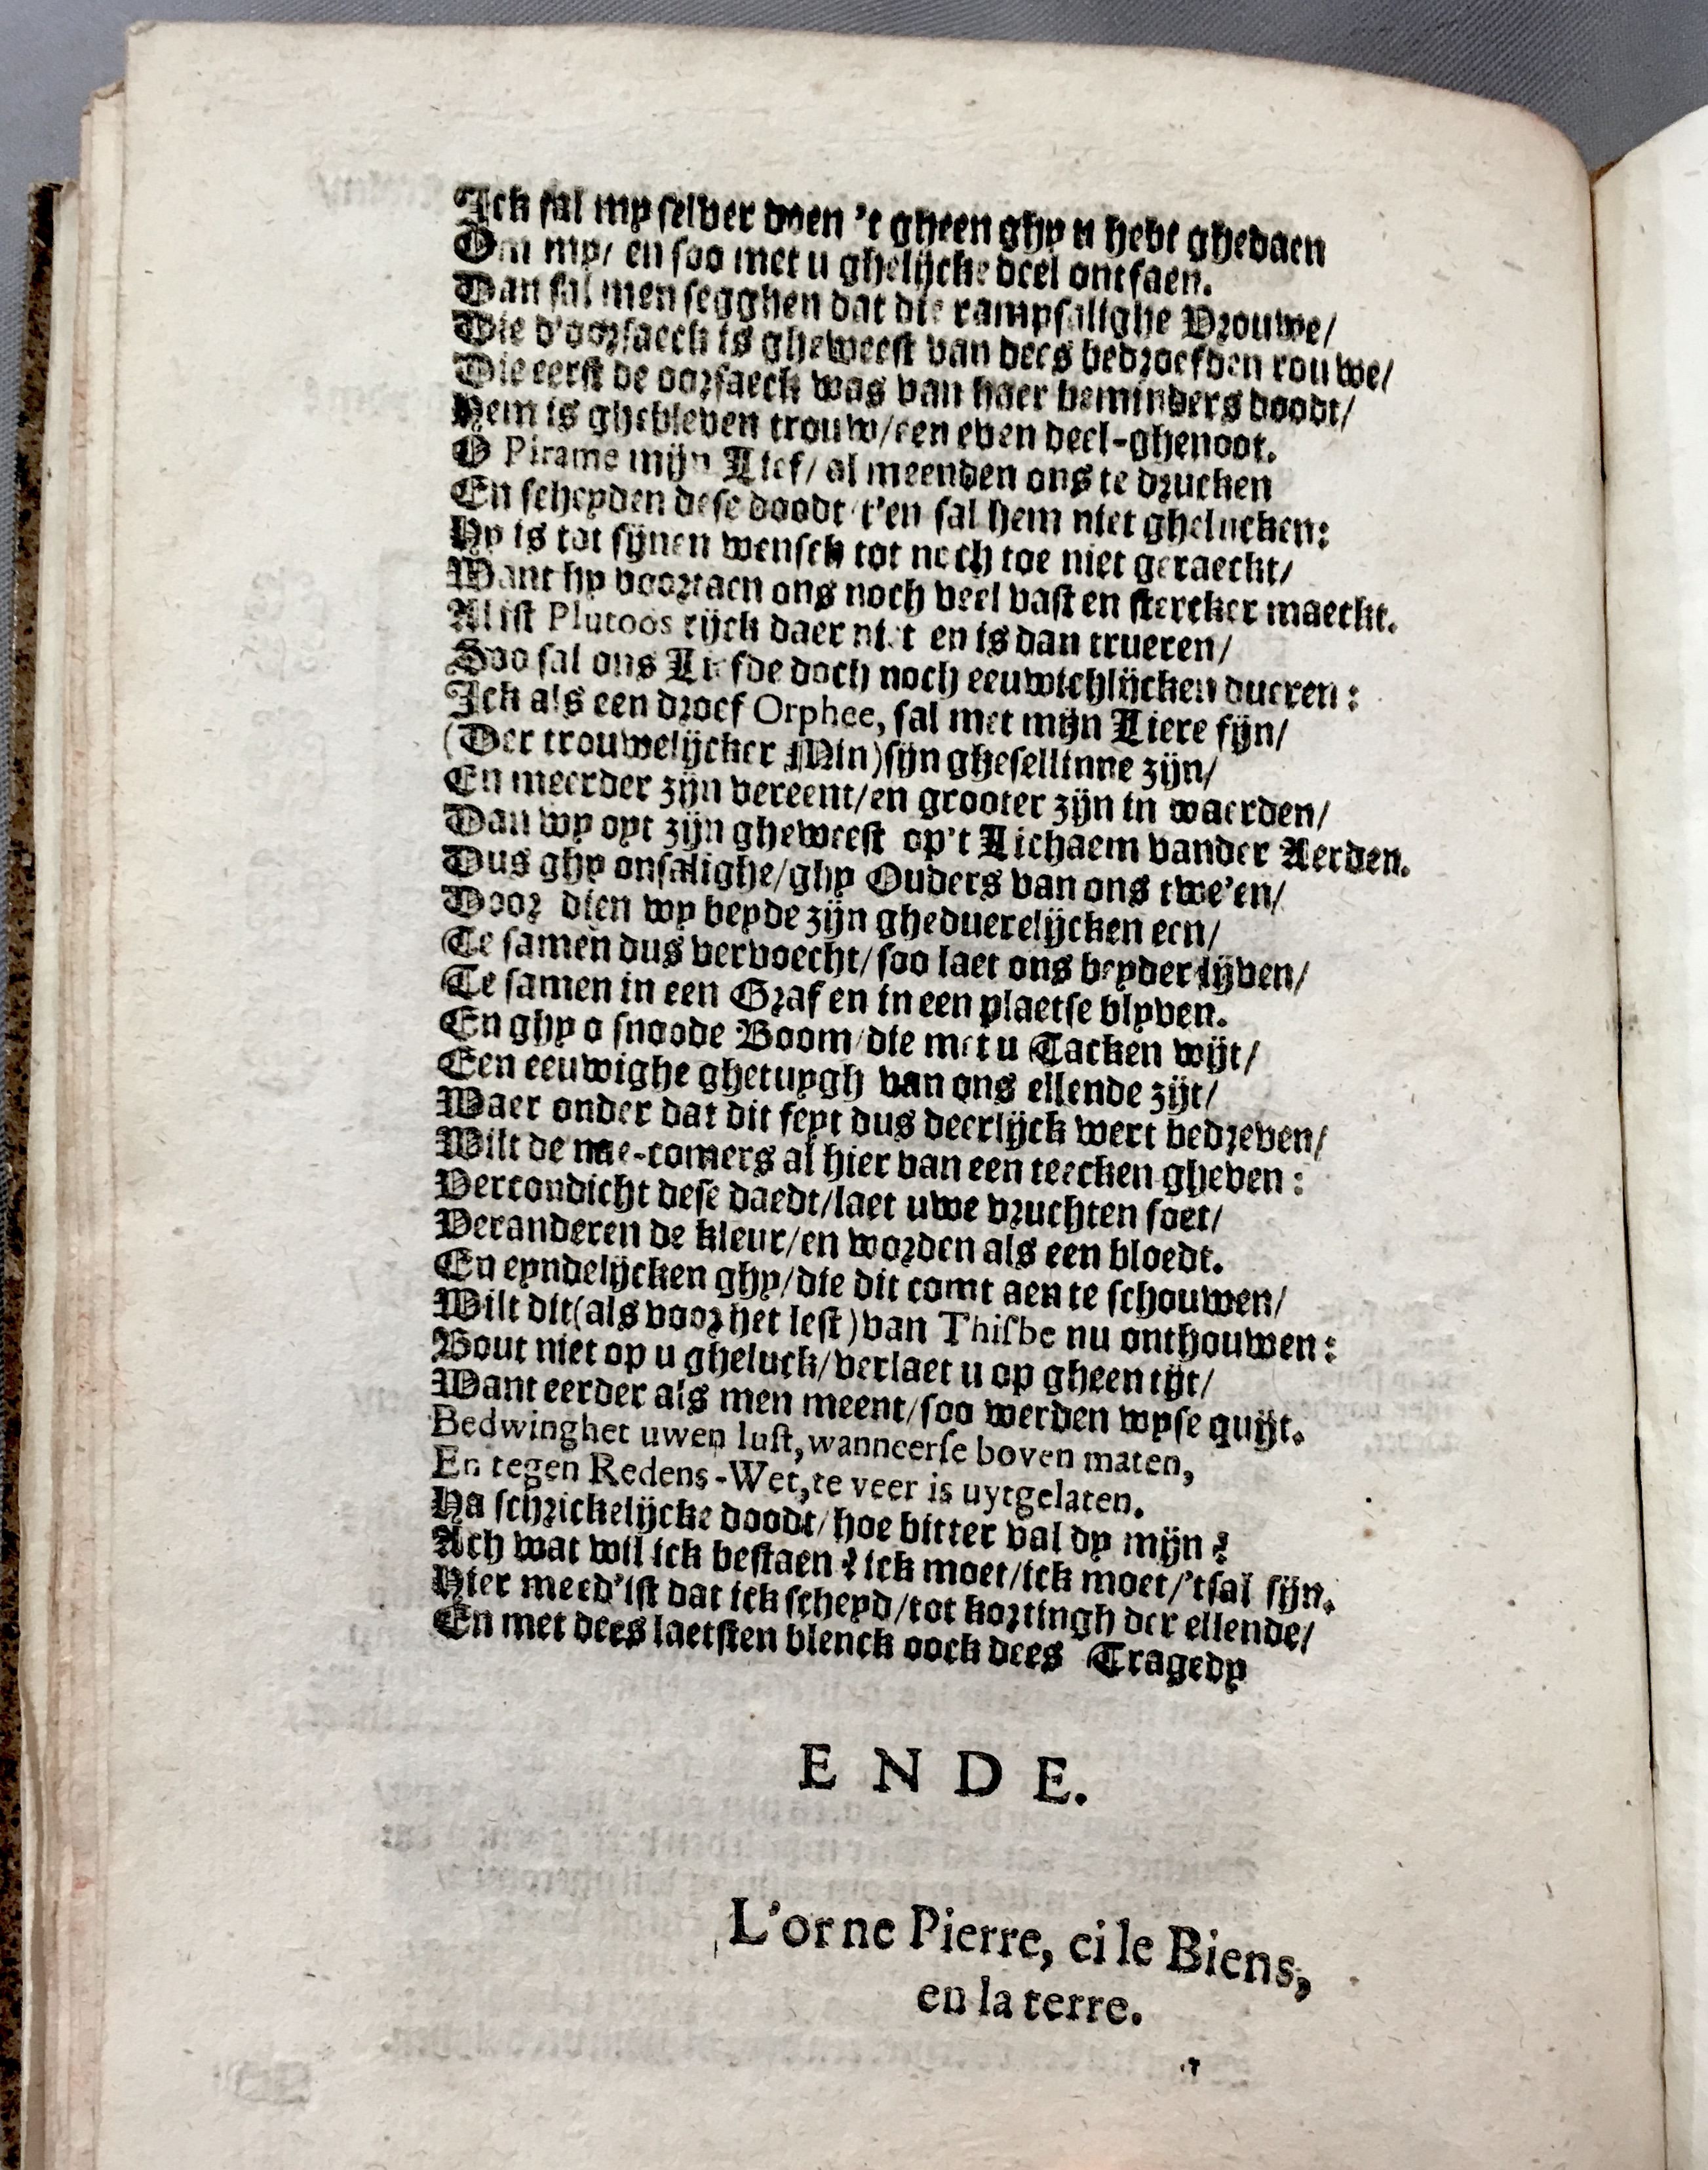 Ick sal my selver doen 't gheen ghy u hebt ghedaen
Om my/ en soo met u ghelijcke deel ontfaen.
Dan sal men segghen dat die rampsalighe Vrouwe/
Die d'oorsaeck is gheweest van dees bedroefden rouwe/
Die eerst de oorsaeck was van haer beminders doodt/
Hem is ghebleven trouw/een even deel-ghenoot.
O Pirame mijn Lief/ al meenden ons te drucken
En scheyden dese doodt/t'en sal hem niet ghelucken:
Hy is tot sijnen wensch tot noch toe niet geraeckt/
Want hy voortaen ons noch veel vast en stercker maeckt.
Al ist Plutoos rijck daer niet en is dan trueren/
Soo sal ons Liefde doch noch eeuwichlijcken dueren:
Ick als een droef Orphee, sal met mijn Liere fijn/
(Der trouwelijcker Min)sijn ghesellinne zijn/
En meerder zijn vereent/en grooter zijn in waerden/
Dan wy oyt zijn gheweest op't Lichaem vander Aerden.
Dus ghy onsalighe/ghy Ouders van ons twe'en/
Door dien wy beyde zijn gheduerelijcken een/
Te samen dus vervoecht/soo laet ons beyder lijven/
Te samen in een Graf en in een plaetse blyven.
En ghy o snoode Boom/die met u Tacken wijt/
Een eeuwighe ghetuygh van ons ellende zijt/
Waer onder dat dit feyt dus deerlijck wert bedreven/
Wilt de nae-comers al hier van een teecken gheven:
Vercondicht dese daedt/laet uwe vruchten soet/
Veranderen de kleur/en worden als een bloedt.
En eyndelijcken ghy/die dit comt aen te schouwen/
Wilt dit(als voor het lest)van Thisbe nu onthouwen:
Bout niet op u gheluck/verlaet u op gheen tijt/
Want eerder als men meent/soo werden wyse quijt.
Bedwinghet uwen lust, wanneerse boven maten,
En tegen Redens-Wet, te veer is uytgelaten.
Ha schrickelijcke doodt/hoe bitter val dy mijn?
Ach wat wil ick bestaen? ick moet/ick moet/'tsal sijn.
Hier meed'ist dat ick scheyd/tot kortingh der ellende/
En met dees laetsten blenck oock dees Tragedy
ENDE.
L'orne Pierre, ci le Biens,
en la terre.